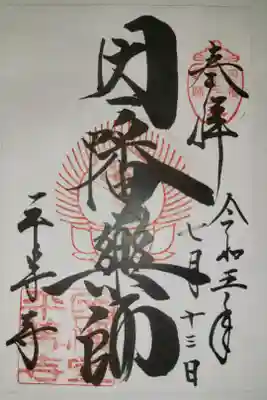 奉拝
令和五年
七月十三日
因幡薬師
平等寺